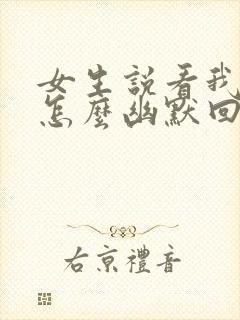 女生說看我
怎麼幽默回
右京禮音